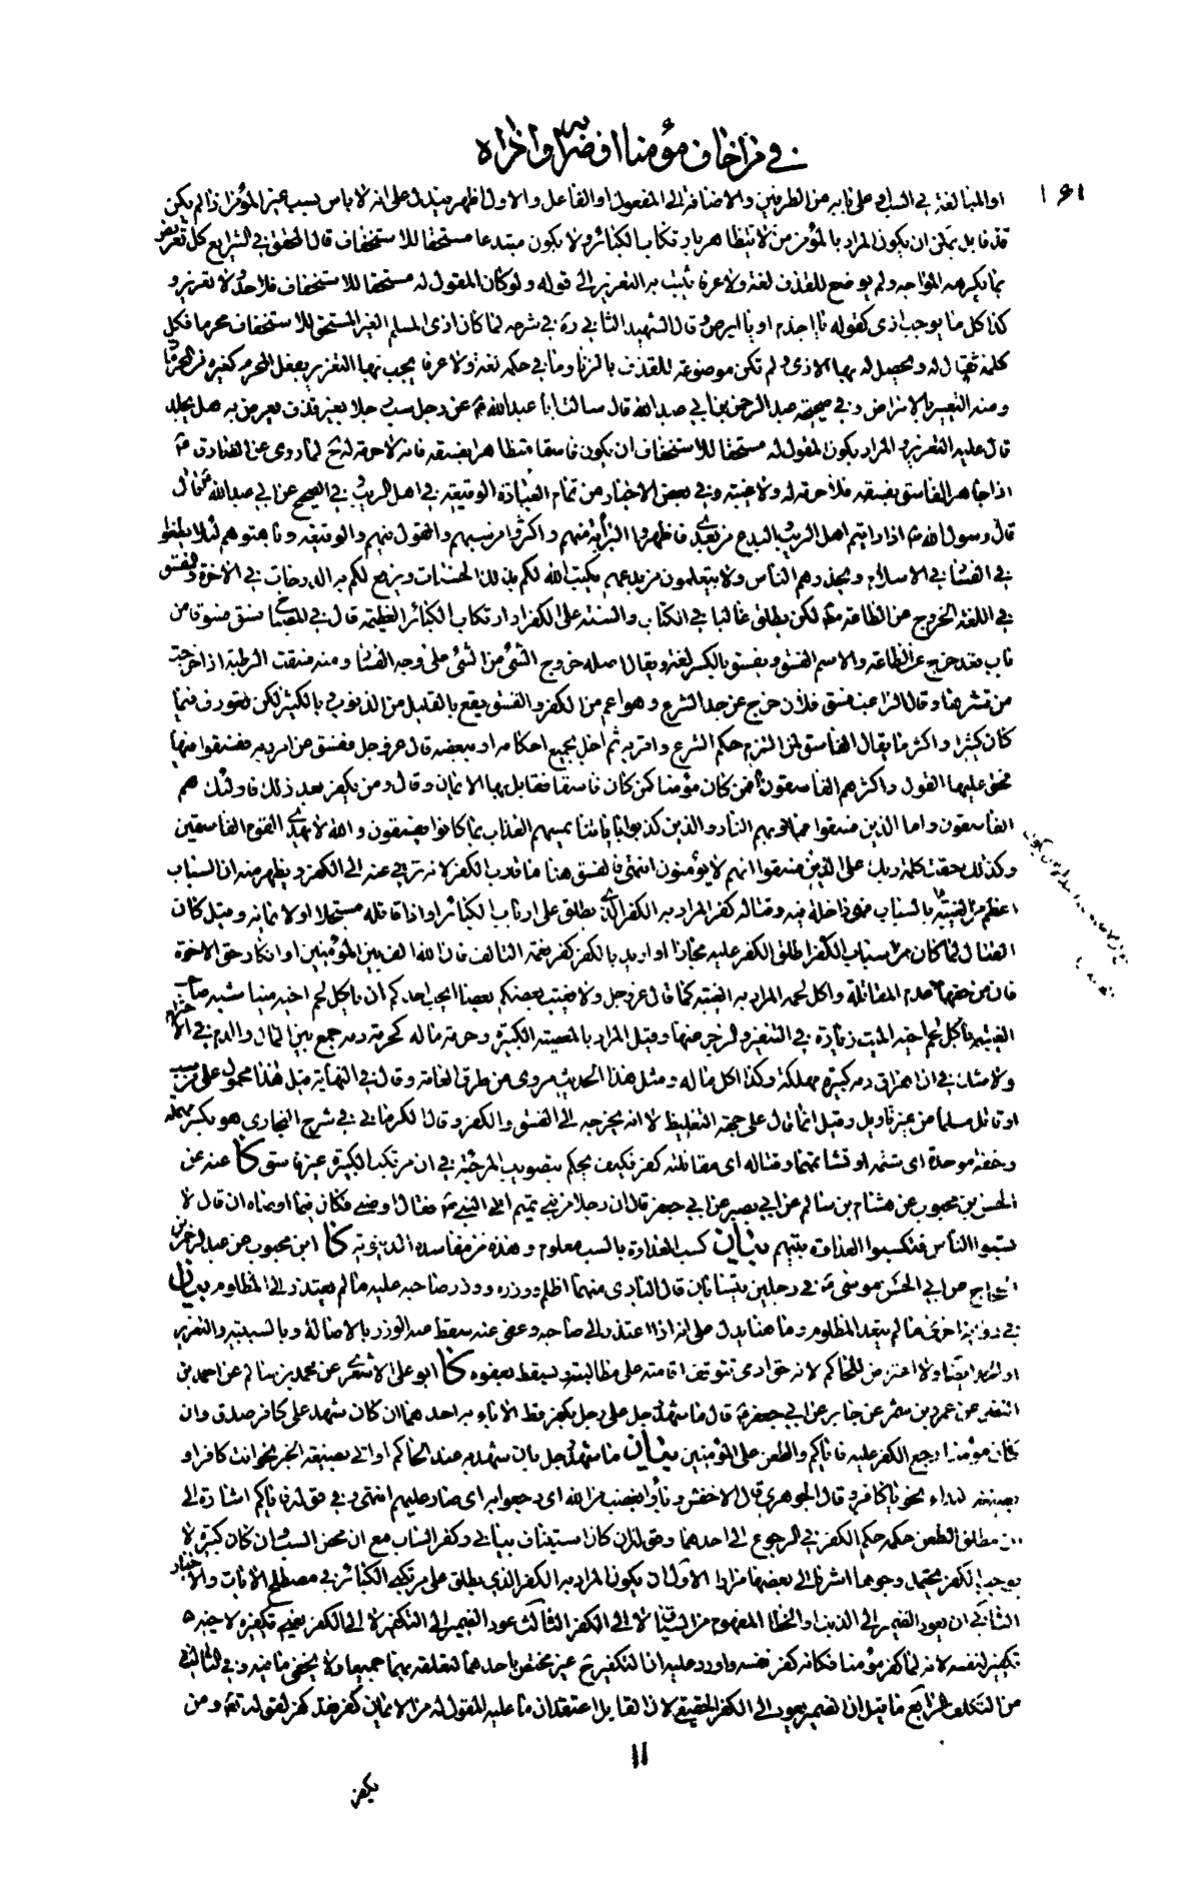 في من اخاف مؤمنا او ضربه او اخزاه
١٦١
او المبالغة في السباب على بابه من الطرفين والاضافة الى المفعول او الفاعل والاول اظهر فيدل على انه لا باس بسب غير المؤمن اذا لم يكن
قذفا بل يمكن ان يكون المراد بالمؤمن من لا يتظاهر بارتكاب الكبائر ولا يكون مبتدعا مستحقا للاستخفاف قال المحقق في الشرايع كل تعريض
بما يكرهه المواجه ولم يوضع للقذف لغة ولا عرفا يثبت به التعزير الى قوله ولو كان المقول له مستحقا للاستخفاف فلا حد ولا تعزير و
كذا كل ما يوجب اذى كقوله يا اجذم او يا ابرص وقال الشهيد الثاني ره في شرحه لما كان اذى المسلم الغير المستحق للاستخفاف محرما فكل
كلمة تقال له ويحصل له بها الاذى ولم تكن موضوعة للقذف بالزنا وما في حكمه لغة ولا عرفا يجب بها التعزير بفعل المحرم كغيره من المحرمات
ومنه التعيير بالامراض وفي صحيحة عبد الرحمن بن ابي عبد الله قال سالت ابا عبد الله ع عن رجل سب رجلا بغير قذف يعرض به هل يجلد
قال عليه التعزير والمراد بكون المقول له مستحقا للاستخفاف ان يكون فاسقا متظاهرا بفسقه فانه لا حرمة له ح لما روى عن الصادق ع
اذا جاهر الفاسق بفسقه فلا حرمة له ولا غيبة وفي بعض الاخبار من تمام العبادة الوقيعة في اهل الريب وفي الصحيح عن ابي عبد الله ع قال
قال رسول الله ص اذا رايتم اهل الريب والبدع من بعدي فاظهروا البرائة منهم واكثروا من سبهم والقول فيهم والوقيعة وباهتوهم لئلا يطغوا
في الفساد في الاسلام ويحذرهم الناس ولا يتعلمون من بدعهم يكتب الله لكم بذلك الحسنات ويرفع لكم به الدرجات في الاخرة والفسق
في اللغة الخروج عن الطاعة مط لكن يطلق غالبا في الكتاب والسنة على الكفر او ارتكاب الكبائر العظيمة قال في المصباح فسق فسوقا من
باب قعد خرج عن الطاعة والاسم الفسق ويفسق بالكسر لغة ويقال اصله خروج الشئ من الشئ على وجه الفساد ومنه فسقت الرطبة اذا خرجت
من قشرها وقال الراغب فسق فلان خرج عن حد الشرع وهو اعم من الكفر والفسق يقع بالقليل من الذنوب وبالكثير لكن تعورف فيما
كان كثيرا واكثر ما يقال الفاسق لمن التزم حكم الشرع واقر به ثم اخل بجميع احكامه او ببعضه قال عز وجل ففسق عن امر ربه ففسقوا فيها
فحق عليها القول واكثرهم الفاسقون افمن كان مؤمنا كمن كان فاسقا فقابل بها الايمان وقال ومن يكفر بعد ذلك فاولئك هم
الفاسقون واما الذين فسقوا فماويهم النار والذين كذبوا باياتنا يمسهم العذاب بما كانوا يفسقون والله لا يهدي القوم الفاسقين
وكذلك حقت كلمة ربك على الذين فسقوا انهم لا يؤمنون انتهى فالفسق هنا ما قارب الكفر لانه ترقى عنه الى الكفر ويظهر منه ان السباب
اعظم من الغيبة بالسباب فهي داخلة فيه وقتاله كفر المراد به الكفر الذي يطلق على ارباب الكبائر او اذا قاتله مستحلا او لايمانه وقيل كان
القتال لما كان من اسباب الكفر اطلق الكفر عليه مجازا او اريد بالكفر كفر نعمة التالف فان الله الف بين المؤمنين او انكار حق الاخوة
فان من حقها عدم المقاتلة واكل لحمه المراد به الغيبة كما قال عز وجل ولا يغتب بعضكم بعضا ايحب احدكم ان ياكل لحم اخيه ميتا شبه صاحب
الغيبة باكل لحم اخيه الميت زيادة في التنفير والزجر عنها وقيل المراد بالمعصية الكبيرة وحرمة ماله كحرمة دمه جمع بين المال والدم في الاحترام
ولا شك في ان اهراق دمه كبيرة مهلكة وكذا اكل ماله ومثل هذا الحديث مروى من طرق العامة وقال في النهاية قيل هذا محمول على من سب
او قاتل مسلما من غير تاويل وقيل انما قال على جهة التغليظ لا انه يخرجه الى الفسق والكفر وقال الكرماني في شرح البخاري هو بكسر مهملة
وخفة موحدة اى شتمه او تشاتمهما وقتاله اى مقاتلته كفر فكيف يحكم بتصويب المرجئة في ان مرتكب الكبيرة غير فاسق كا عنه عن
الحسن بن محبوب عن هشام بن سالم عن ابي بصير عن ابي جعفر قال ان رجلا من بني تميم اتى النبي ص فقال اوصني فكان فيما اوصاه ان قال لا
تسبوا الناس فتكسبوا العداوة بينهم بيان كسب العداوة بالسب معلوم وهذه من مفاسده الدنيوية كا ابن محبوب عن عبد الرحمن بن
الحجاج عن ابي الحسن موسى ع في رجلين يتسابان قال البادى منهما اظلم ووزره ووزر صاحبه عليه ما لم يعتذر الى المظلوم بيان
في رواية اخرى ما لم يتعد المظلوم وما هنا يدل على انه اذا اعتذر الى صاحبه وعفى عنه سقط عنه الوزر بالاصالة وبالسببية والتعزير
او الحد ايضا ولا اعتراض للحاكم لانه حق ادمى تتوقف اقامته على مطالبته ويسقط بعفوه كا ابو على الاشعري عن محمد بن سالم عن احمد بن
النضر عن عمرو بن شمر عن جابر عن ابي جعفر ع قال ما شهد رجل على رجل بكفر قط الا باء به احدهما ان كان شهد على كافر صدق وان
كان مؤمنا رجع الكفر عليه فاياكم والطعن على المؤمنين بيان ما شهد رجل بان شهد به عند الحاكم او اتى بصيغة الخبر نحو انت كافر او
بصيغة النداء نحو يا كافر وقال الجوهري قال الاخفش وباؤا بغضب من الله اى رجعوا به اى صار عليهم انتهى وفي قوله فاياكم اشارة الى
ان مطلق الطعن حكمه حكم الكفر في الرجوع الى احدهما وقوله ان كان استيناف بياني وكفر الساب مع ان محض السب وان كان كبيرة لا
يوجب الكفر يحتمل وجوها اشرنا الى بعضها مرارا الاول ان يكون المراد به الكفر الذي يطلق على مرتكبي الكبائر في مصطلح الايات والاخبار
الثاني ان يعود الضمير الى الذنب او الخطا المفهوم من السياق لا الى الكفر الثالث عود الضمير الى التكفير لا الى الكفر يعني تكفيره لاخيه
تكفير لنفسه لانه لما كفر مؤمنا فكانه كفر نفسه واورد عليه ان التكفير ح غير مختص باحدهما لتعلقه بهما جميعا ولا يخفى ما فيه وفي الثاني
من التكلف الرابع ما قيل ان الضمير يعود الى الكفر الحقيقي لان القايل اعتقد ان ما عليه المقول له من الايمان كفر فقد كفر لقوله تعالى ومن
١١
يكفر